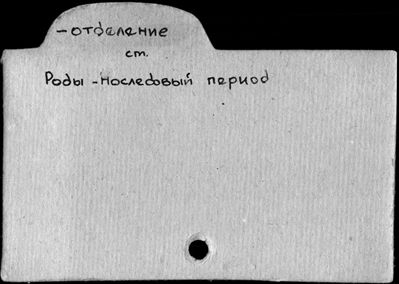 -отделение
ст.
Роды -последовый период